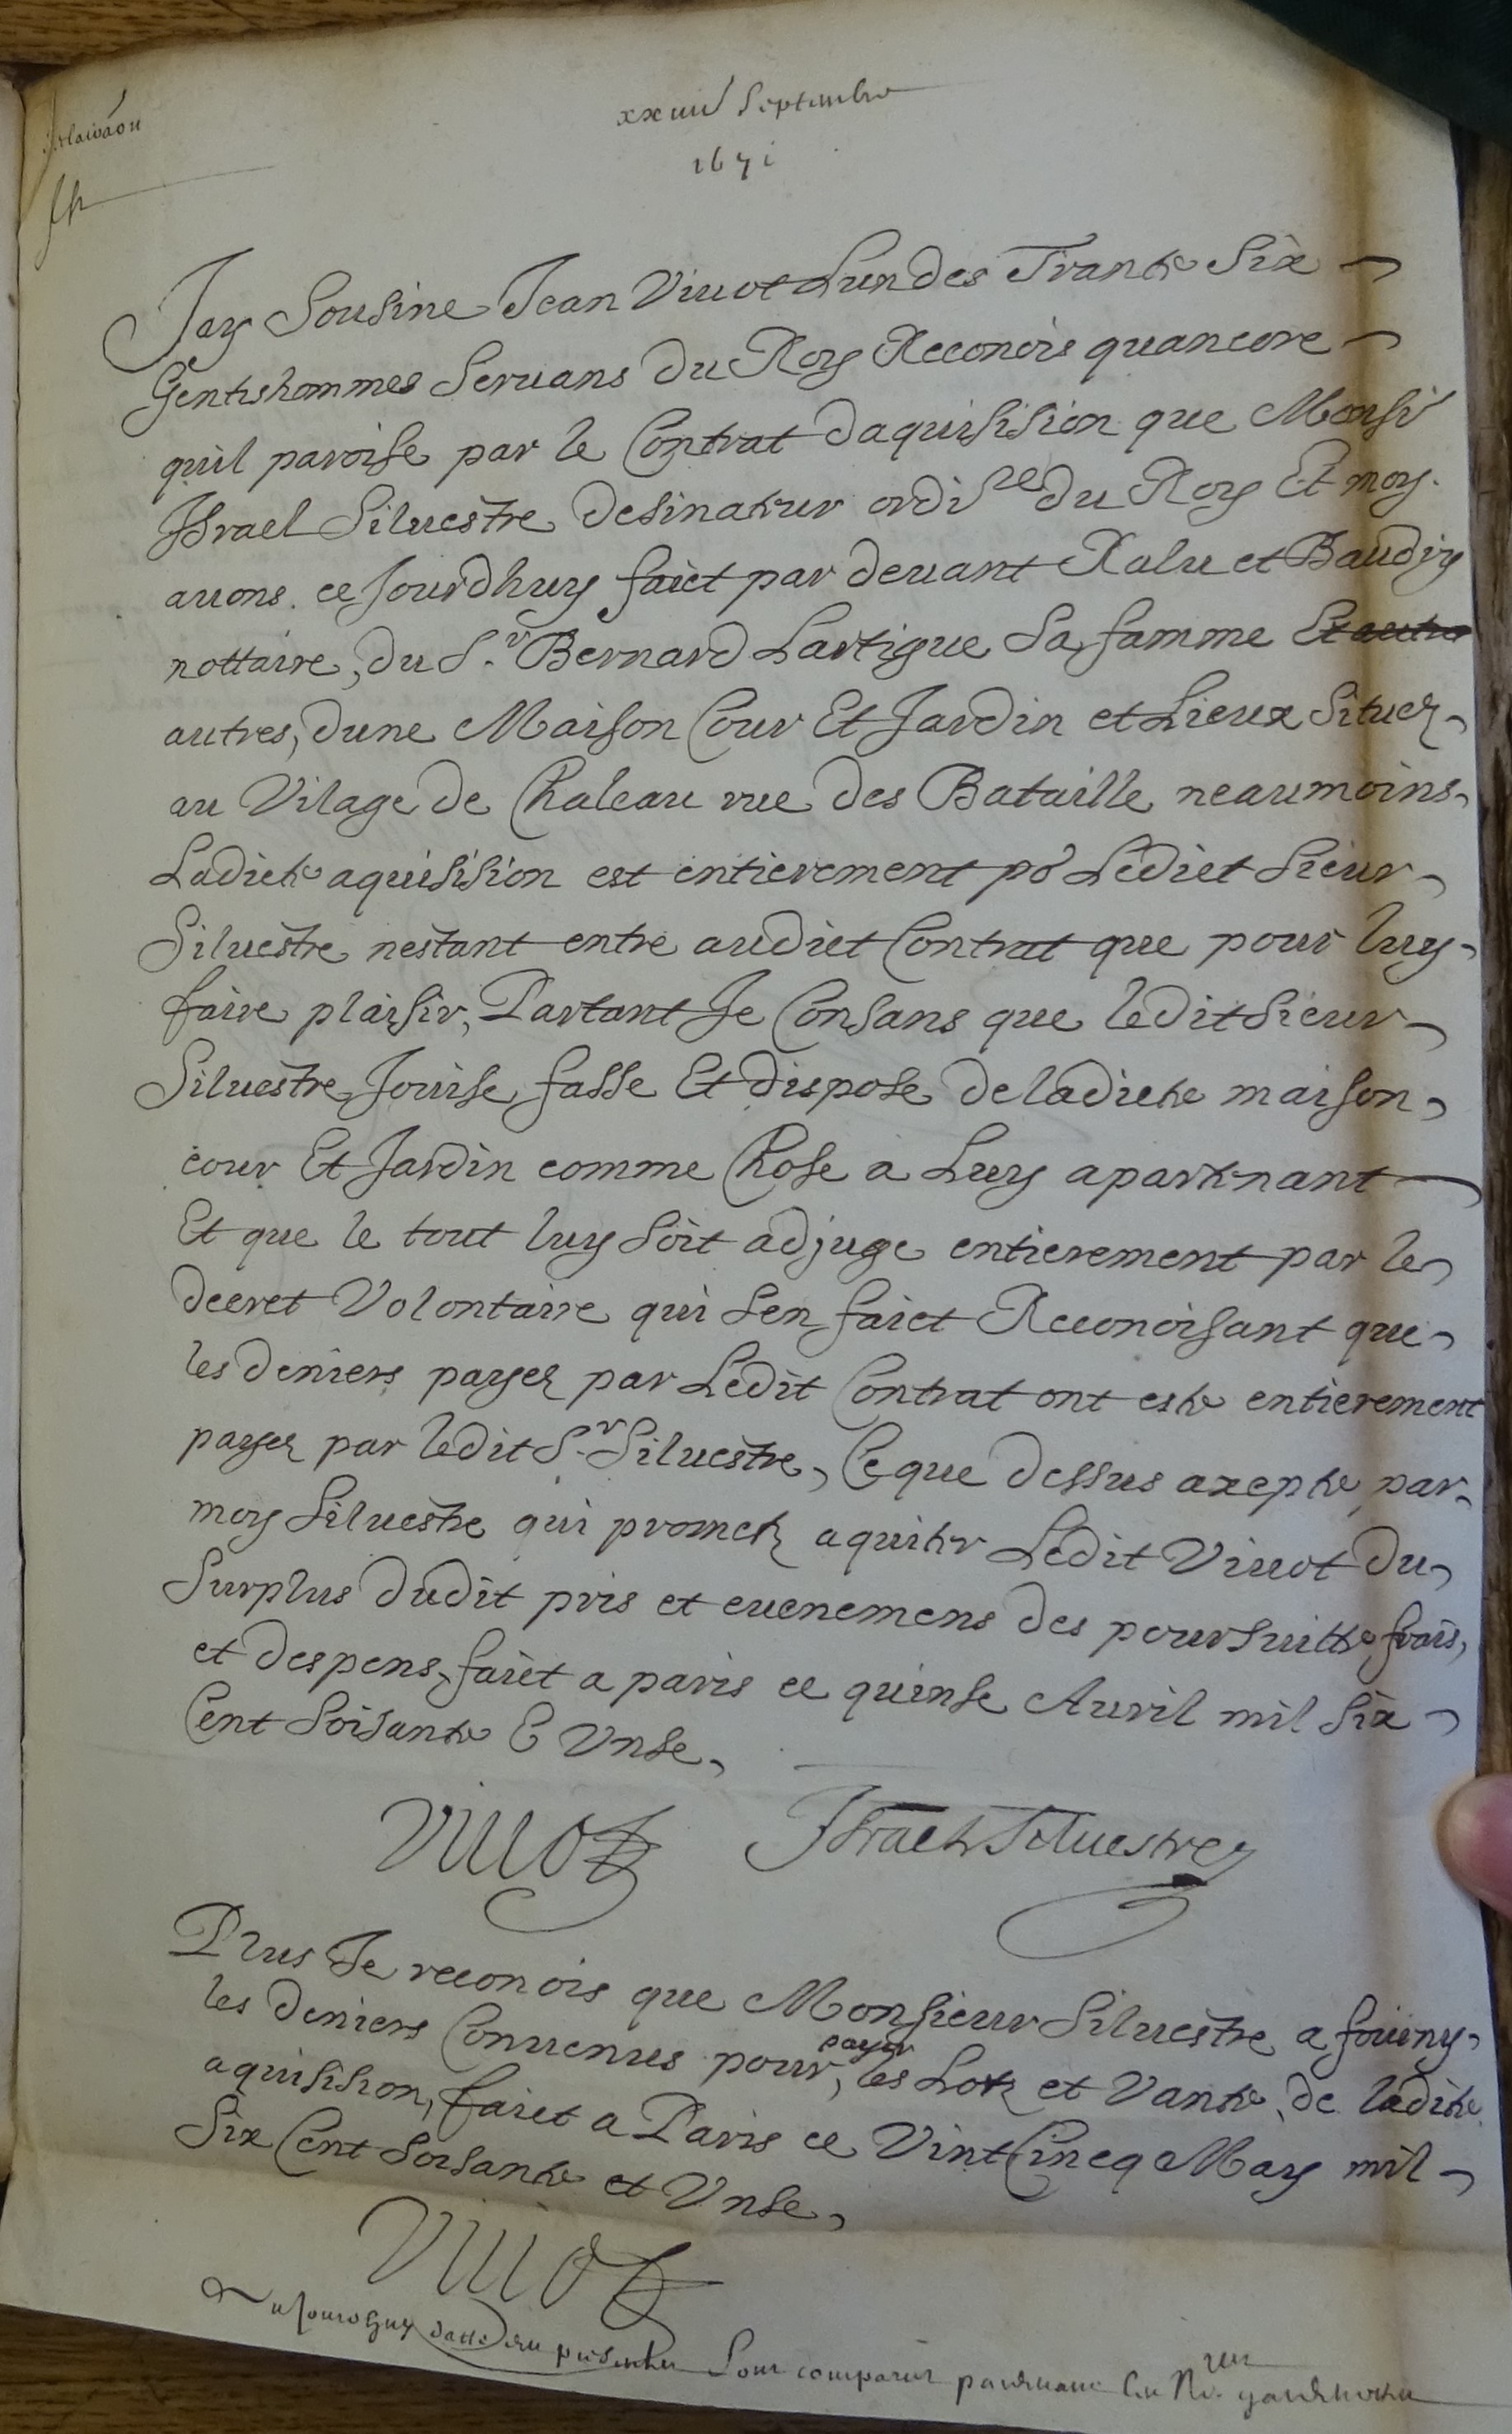 xxiiii Septembre
1671
Jay Sousine Jean Viuot Lun des Trante Six
Gentishommes Seruans du Roy Reconois quancore
quil paroise par le Contrat daquisision que Monsr
Israel Siluestre desinateur ordire du Roy Et moy
auons ce Jourdhuy faict par deuant Ralu et Baudry
nottaire, du Sr Bernard Lartigue Sa famme Et autre
autres, dune Maison Cour Et Jardin et Lieux Situez
au Vilage de Chaleau rue des Bataille neaumoins
Ladicte aquisision est entierement po Lediet Sieur
Siluestre nestant entre audict Contrat que pour luy
faire plaisir, Partant Je Consans que ledit Sieur
Siluestre Jouise fasse Et dispose de ladicte maison,
cour Et Jardin comme Chose a Luy apartenant
Et que le tout luy Soit adjuge entierement par le
decret Volontaire qui Sen faict Reconoisant que
les deniers payez par Ledit Contrat ont este entierement
payez par ledit Sr Siluestre, Ce que dessus axepte par
moy Siluestre qui prometz aquiter Ledit Viuot du
Surplus dudit pris et euenemens des poursuitte frais,
et despens, faict a paris ce quinse Auril mil Six
Cent Soisante E Unse,
Viuot Israel Siluestre
Plus Je reconois que Monsieur Siluestre a fourny
les deniers Conuenus pour payer les Lotz et Vante, de ladite
aquisision, faict a Paris ce Vint Cincq May mil
Six Cent Soisante et Unse,
Viuot